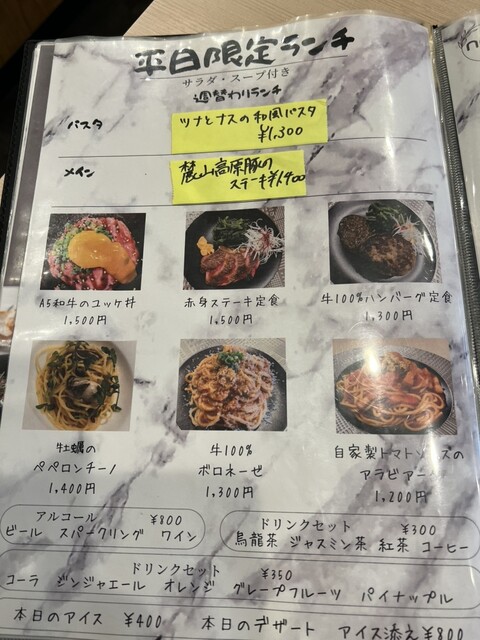 平日限定ランチ
サラダ・スープ付き
週替わりランチ
パスタ
ツナとナスの和風パスタ
¥1,300
メイン
麓山高原豚の
ステーキ ¥1,400
A5和牛のユッケ丼
1,500円
赤身ステーキ定食
1,500円
牛100%ハンバーグ定食
1,300円
牡蠣の
ペペロンチーノ
1,400円
牛100%
ボロネーゼ
1,300円
自家製トマトソースの
アラビアータ
1,200円
アルコール ¥800
ビール スパークリング ワイン
ドリンクセット ¥300
烏龍茶 ジャスミン茶 紅茶 コーヒー
ドリンクセット ¥350
コーラ ジンジャエール オレンジ グレープフルーツ パイナップル
本日のアイス ¥400
本日のデザート アイス添え¥800